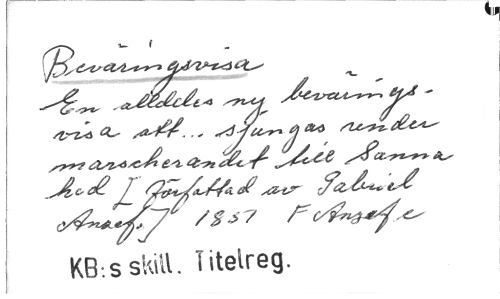 Beväringsvisa
En alldeles ny bevärings-
visa att... sjungas under
marscherandet till Sanna
hed [Författad av Gabriel
Anref.] 1857 F Anref c
KB:s skill. Titelreg.